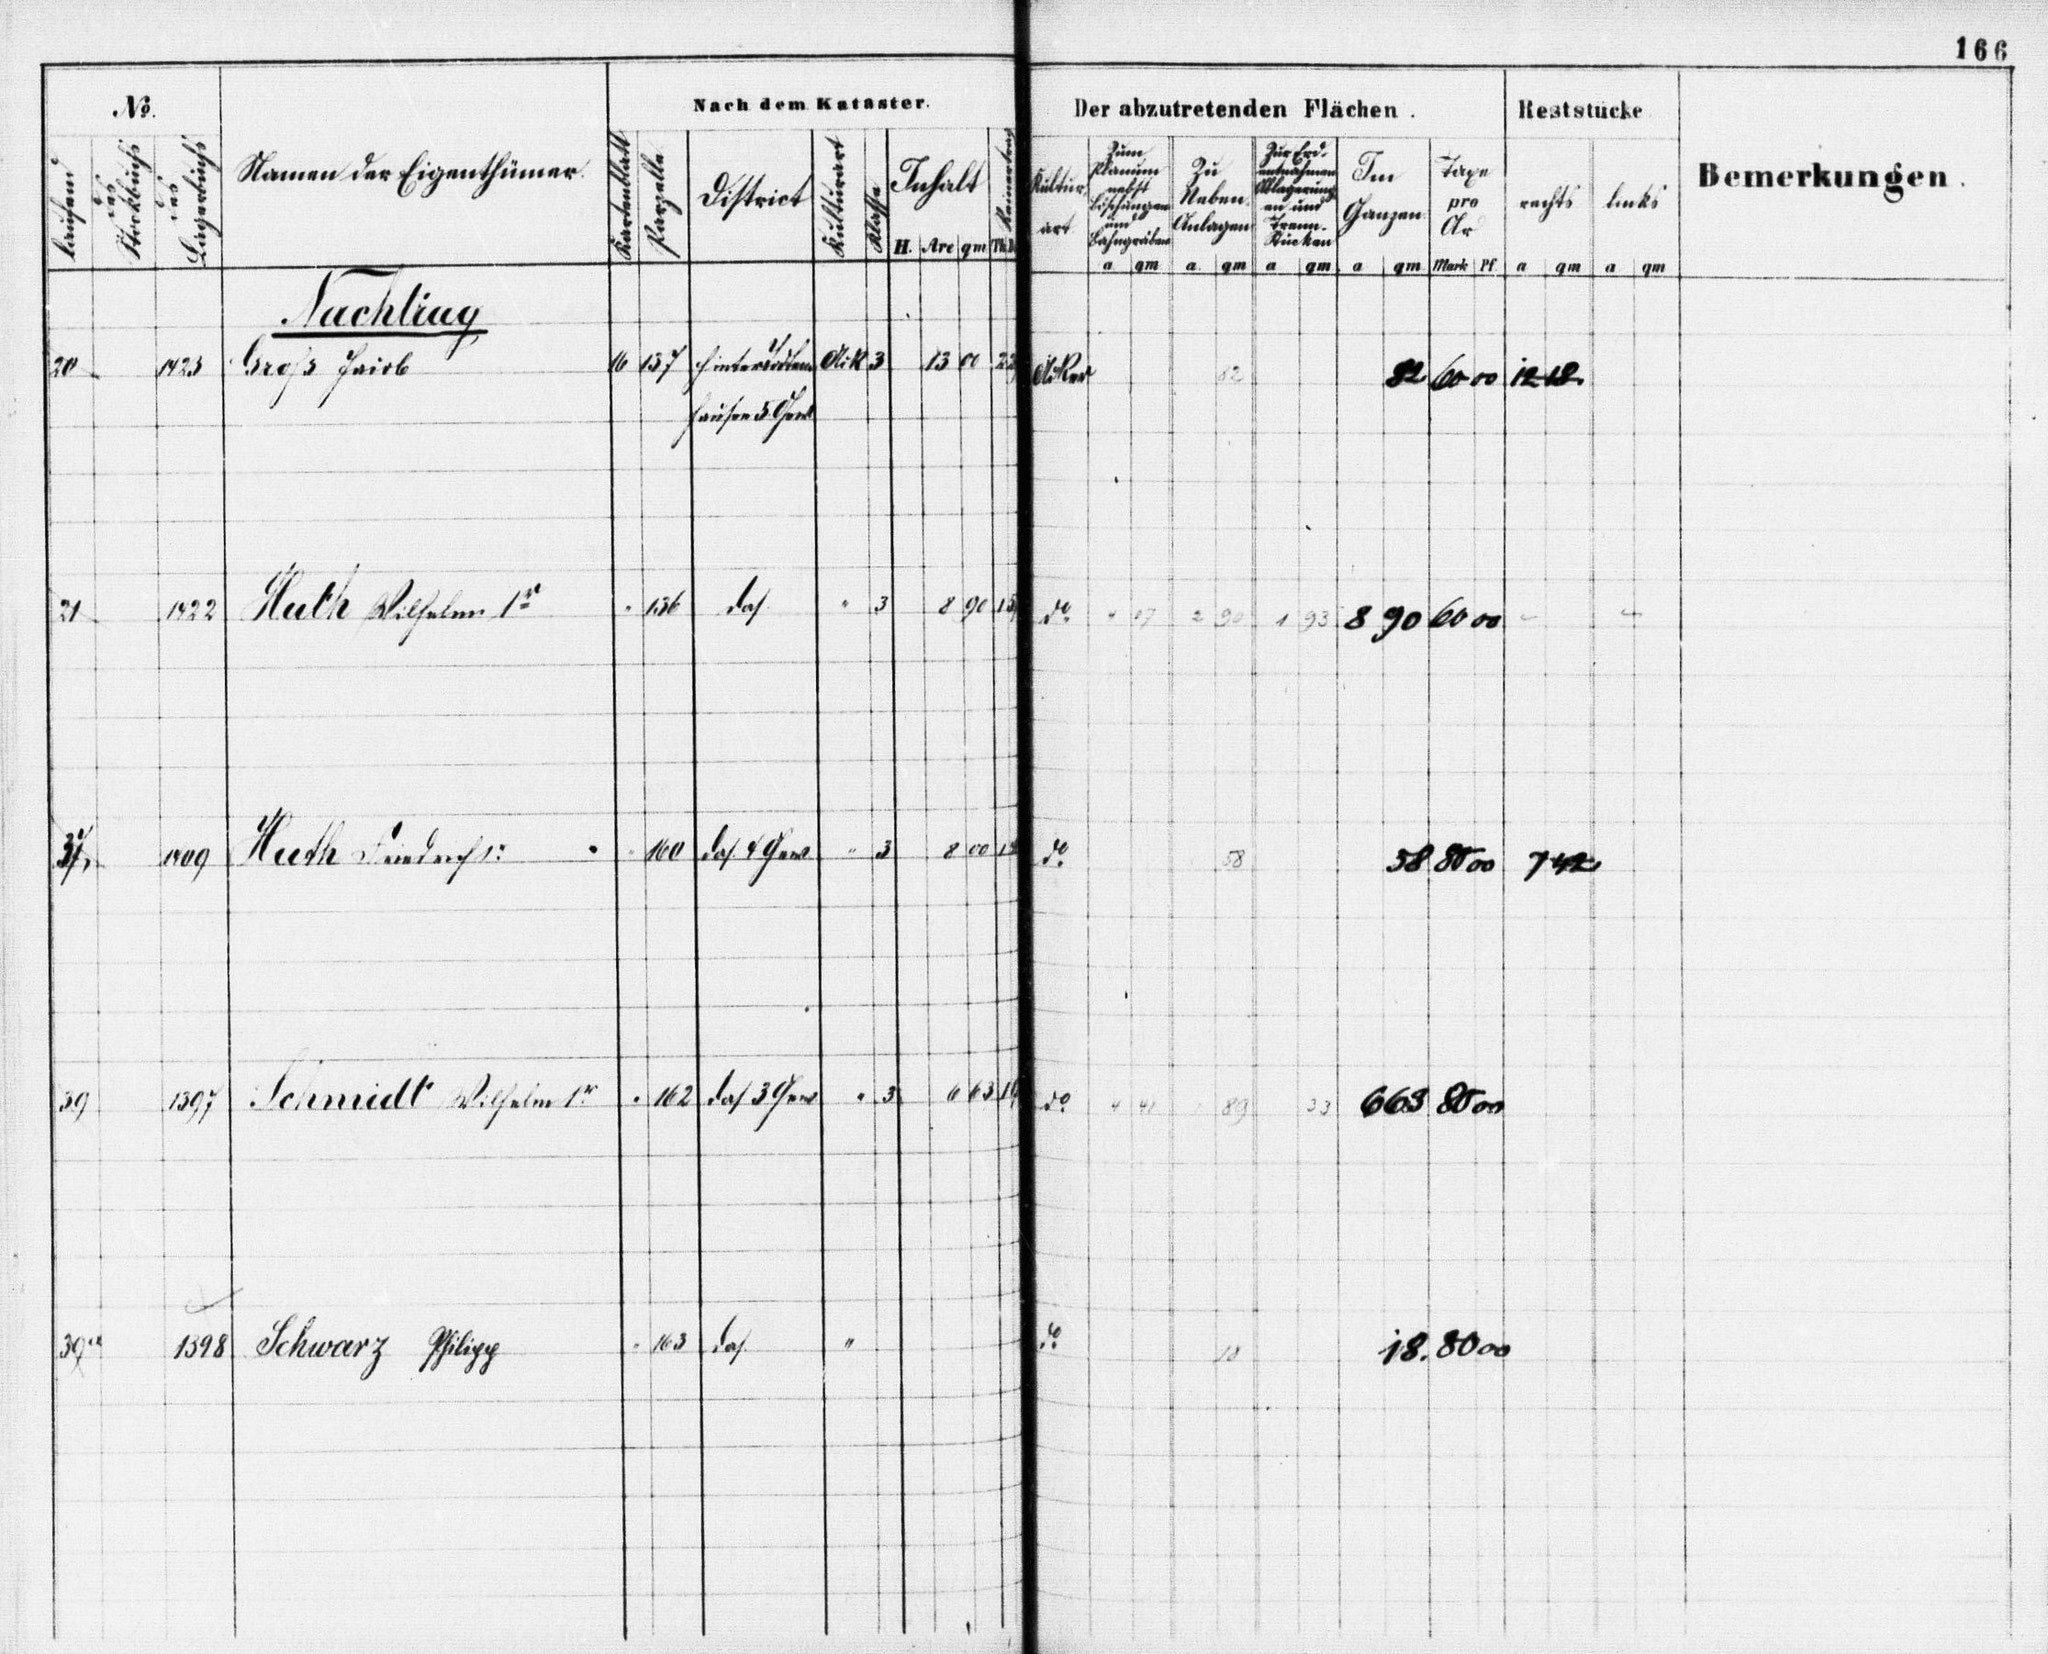 166
No. Nach dem Kataster. Der abzutretenden Flächen. Reststücke Bemerkungen.
laufend des Stockbuchs des Lagerbuchs Namen der Eigenthümer. Kartenblatt Parzelle District Kulturart Klasse Inhalt Reinertrag Kultur art Zum Planum nebst Böschungen und Bahngräben Zu Neben Anlagen Zur Erd- entnahmen Ablagerung en und Trenn- stücken Im Ganzen Taxe pro Ar rechts links
H. Are qm Th. a qm a. qm a qm a qm Mark Pf a qm a qm
Nachtrag
20 1423 Groß Jacob 16 137 Ack 3 13 00 22 Acker 82 82 60 00 12 18
hausen 5 Gew
21 1422 Huth Wilhelm 1r " 136 das. " 3 8 90 15 do 4 07 2 90 1 93 8 90 60 00 - -
37 1409 Huth Friedrich 1r " 160 das. 4 Gew " 3 8 00 do 58 58 80 00 7 42
39 1397 Schmidt Wilhelm 1r " 162 das. 3 Gew " 3 6 63 do 89 33 6 63 80 00
39a 1398 Schwarz Philipp " 163 das. " do 18 18. 80 00